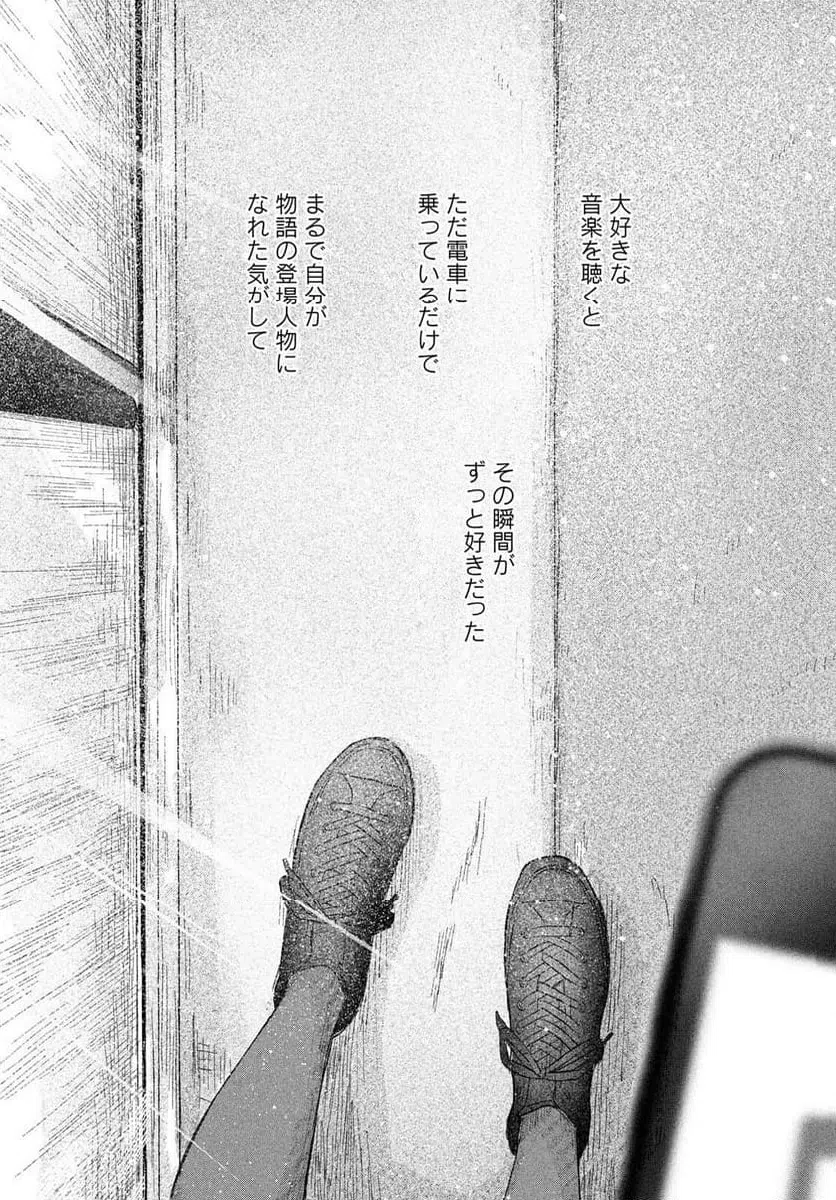 大好きな
音楽を聴くと
ただ電車に
乗っているだけで
まるで自分が
物語の登場人物に
なれた気がして
その瞬間が
ずっと好きだった